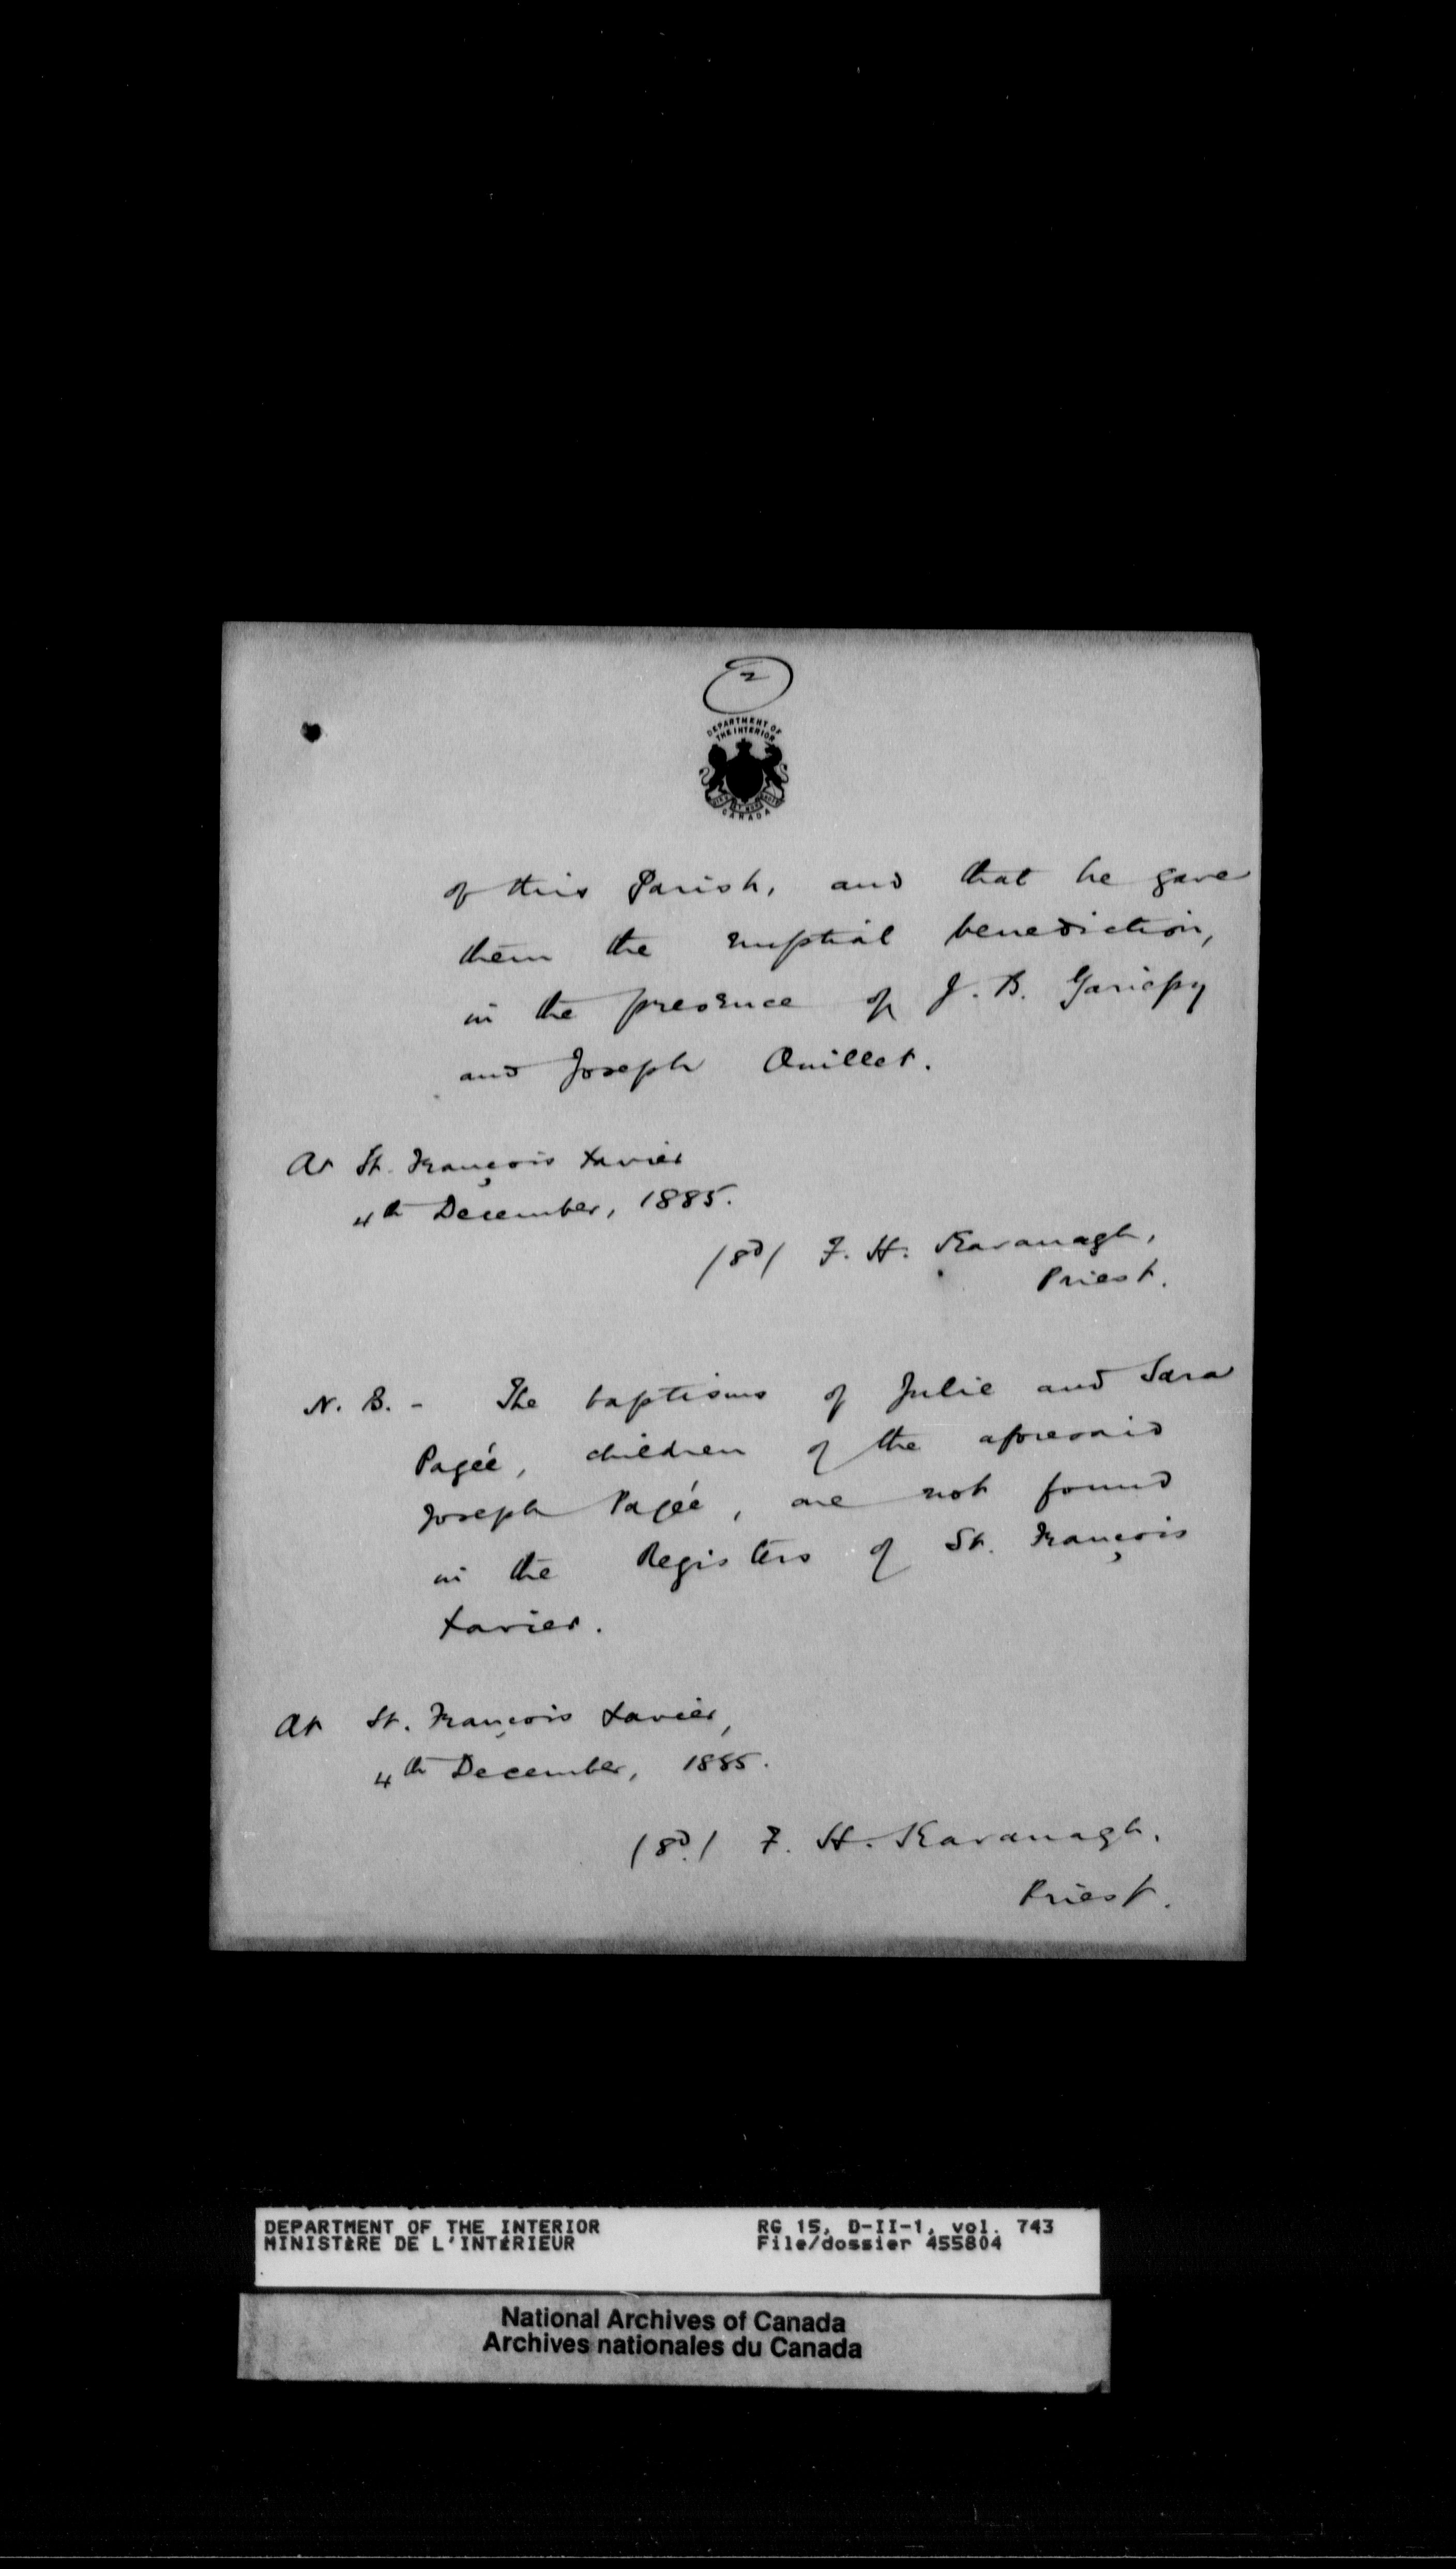 2
DEPARTMENT OF
THE INTERIOR
CANADA
of this Parish, and that he gave
them the nuptial benediction,
in the presence of J. B. Gariepy
and Joseph Ouillet.
At St. François Xavier
4th December, 1885.
(Sd) F. H. Kavanagh,
Priest.
N. B. - The baptisms of Julie and Sara
Pagée, children of the aforesaid
Joseph Pagée, are not found
in the Registers of St. François
Xavier.
At St. François Xavier,
4th December, 1885.
(Sd.) F. H. Kavanagh.
Priest.
DEPARTMENT OF THE INTERIOR RG 15, D-II-1, vol. 743
MINISTÈRE DE L'INTÉRIEUR File/dossier 455804
National Archives of Canada
Archives nationales du Canada